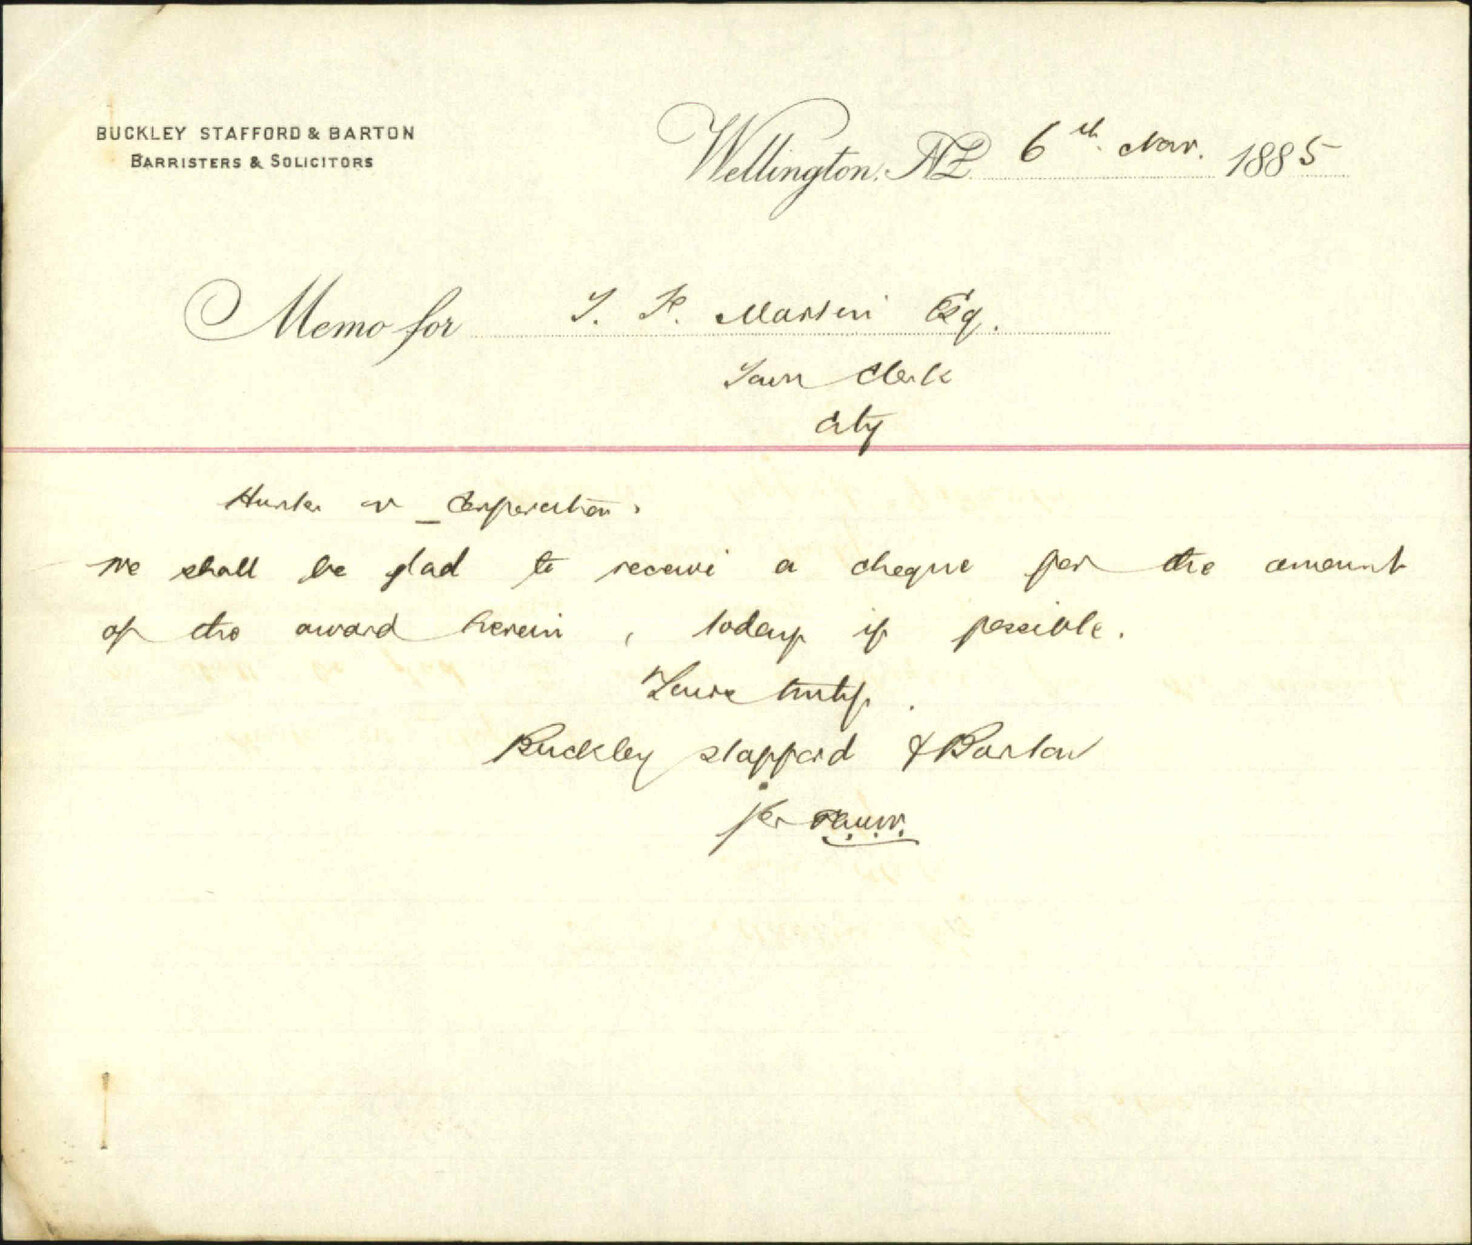 BUCKLEY STAFFORD & BARTON
BARRISTERS & SOLICITORS
Wellington, NZ 6th Nov. 1885
Memo for J. F. Martin Esq.
Town Clerk
City
Hunter v Corporation.
We shall be glad to receive a cheque for the amount
of the award herein, today if possible.
Yours truly.
Buckley Stafford & Barton
per